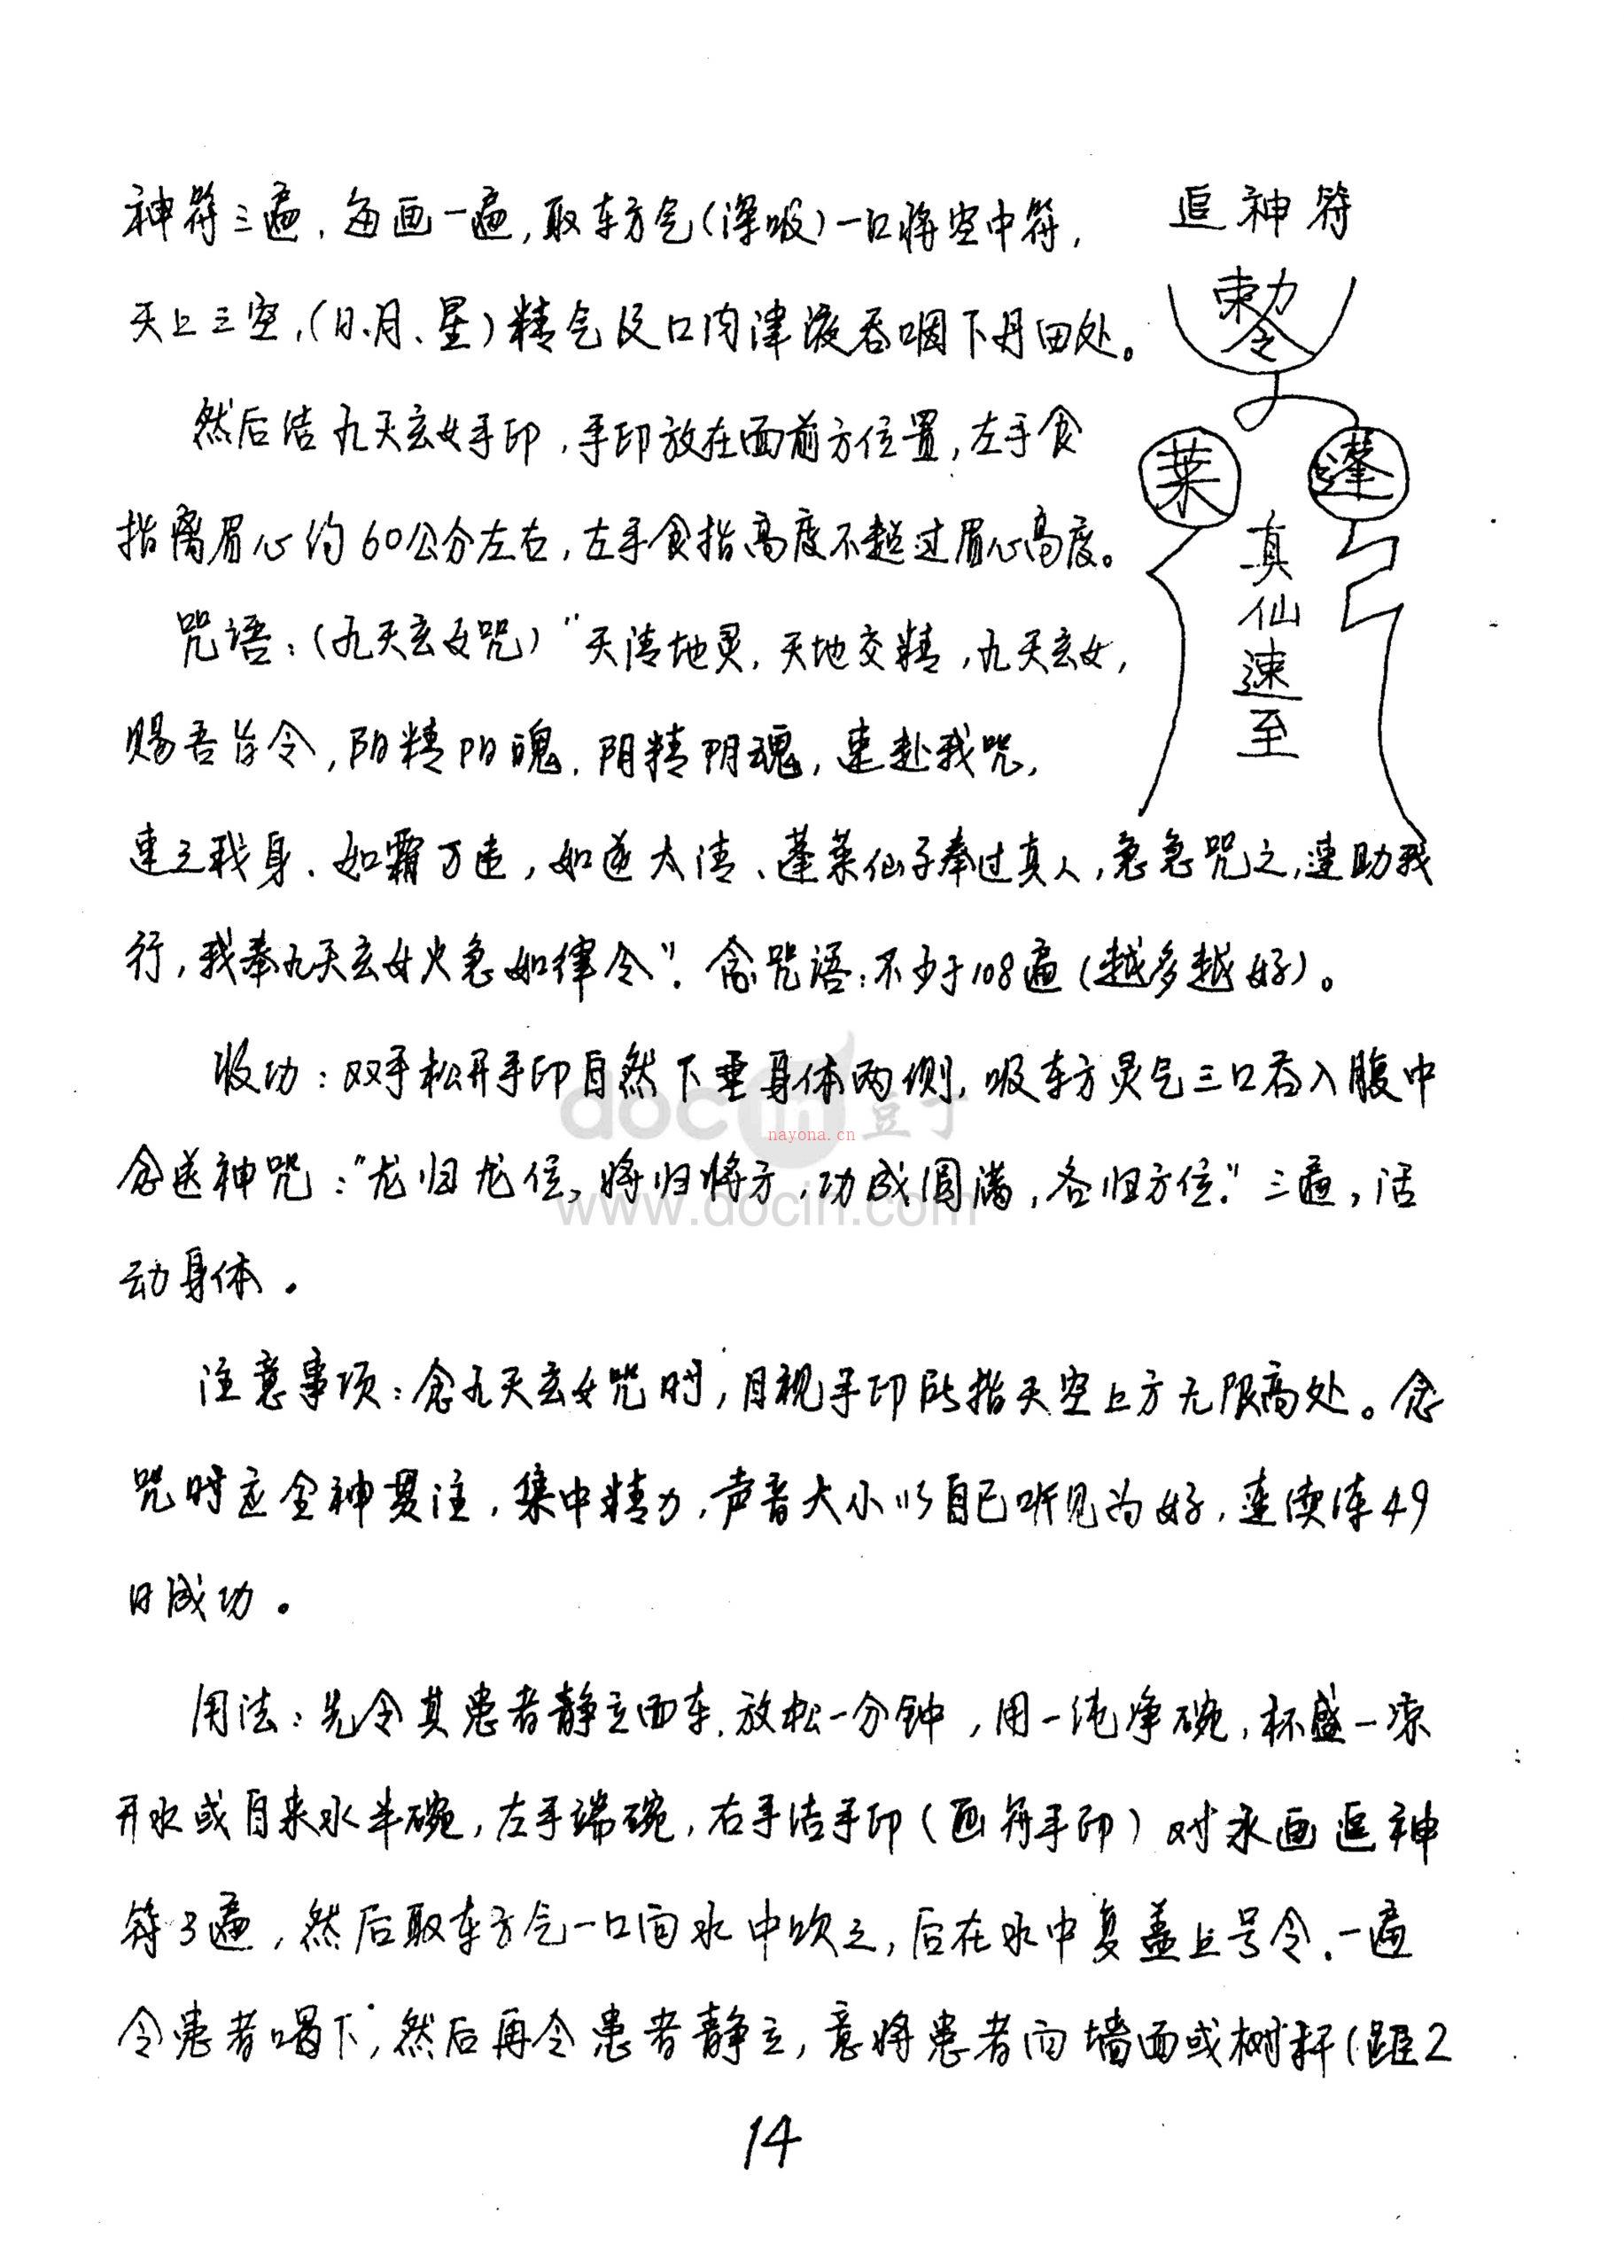 神符三遍，每画一遍，取东方气(深吸)一口将空中符，
天上三空，(日、月、星)精气及口内津液吞咽下丹田处。
然后结九天玄女手印，手印放在面前方位置，左手食
指离眉心约60公分左右，左手食指高度不超过眉心高度。
咒语：(九天玄女咒)"天清地灵，天地交精，九天玄女，
赐吾旨令，阳精阳魂，阴精阴魂，速赴我咒，
速立我身、如霜万速，如遂太清、蓬莱仙子奉过真人，急急咒之，速助我
行，我奉九天玄女火急如律令"。念咒语：不少于108遍(越多越好)。
收功：双手松开手印自然下垂身体两侧，吸东方灵气三口吞入腹中
念送神咒："龙归龙位，将归将方，功成圆满，各归方位。"三遍，活
动身体。
注意事项：念九天玄女咒时，目视手印所指天空上方无限高处。念
咒时应全神贯注，集中精力，声音大小以自己听见为好，连续练49
日成功。
用法：先令其患者静立面东，放松一分钟，用一纯净碗，杯盛一凉
开水或自来水半碗，左手端碗，右手结手印(画符手印)对水画追神
符3遍，然后取东方气一口向水中吹之，后在水中复盖上号令、一遍
令患者喝下，然后再令患者静立，意将患者向墙面或树杆(距2
14
追神符
敕令
莱 蓬
真仙速至
docin 豆丁
nayona.cn
www.docin.com